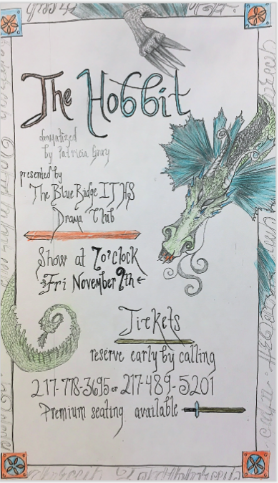 The Hobbit
dramatized
by Patricia Gray
presented by
The Blue Ridge IT HS
Drama Club
Show at 7 o'clock
Fri November 9th
Tickets
reserve early by calling
217-778-3695 or 217-489-5201
Premium seating available